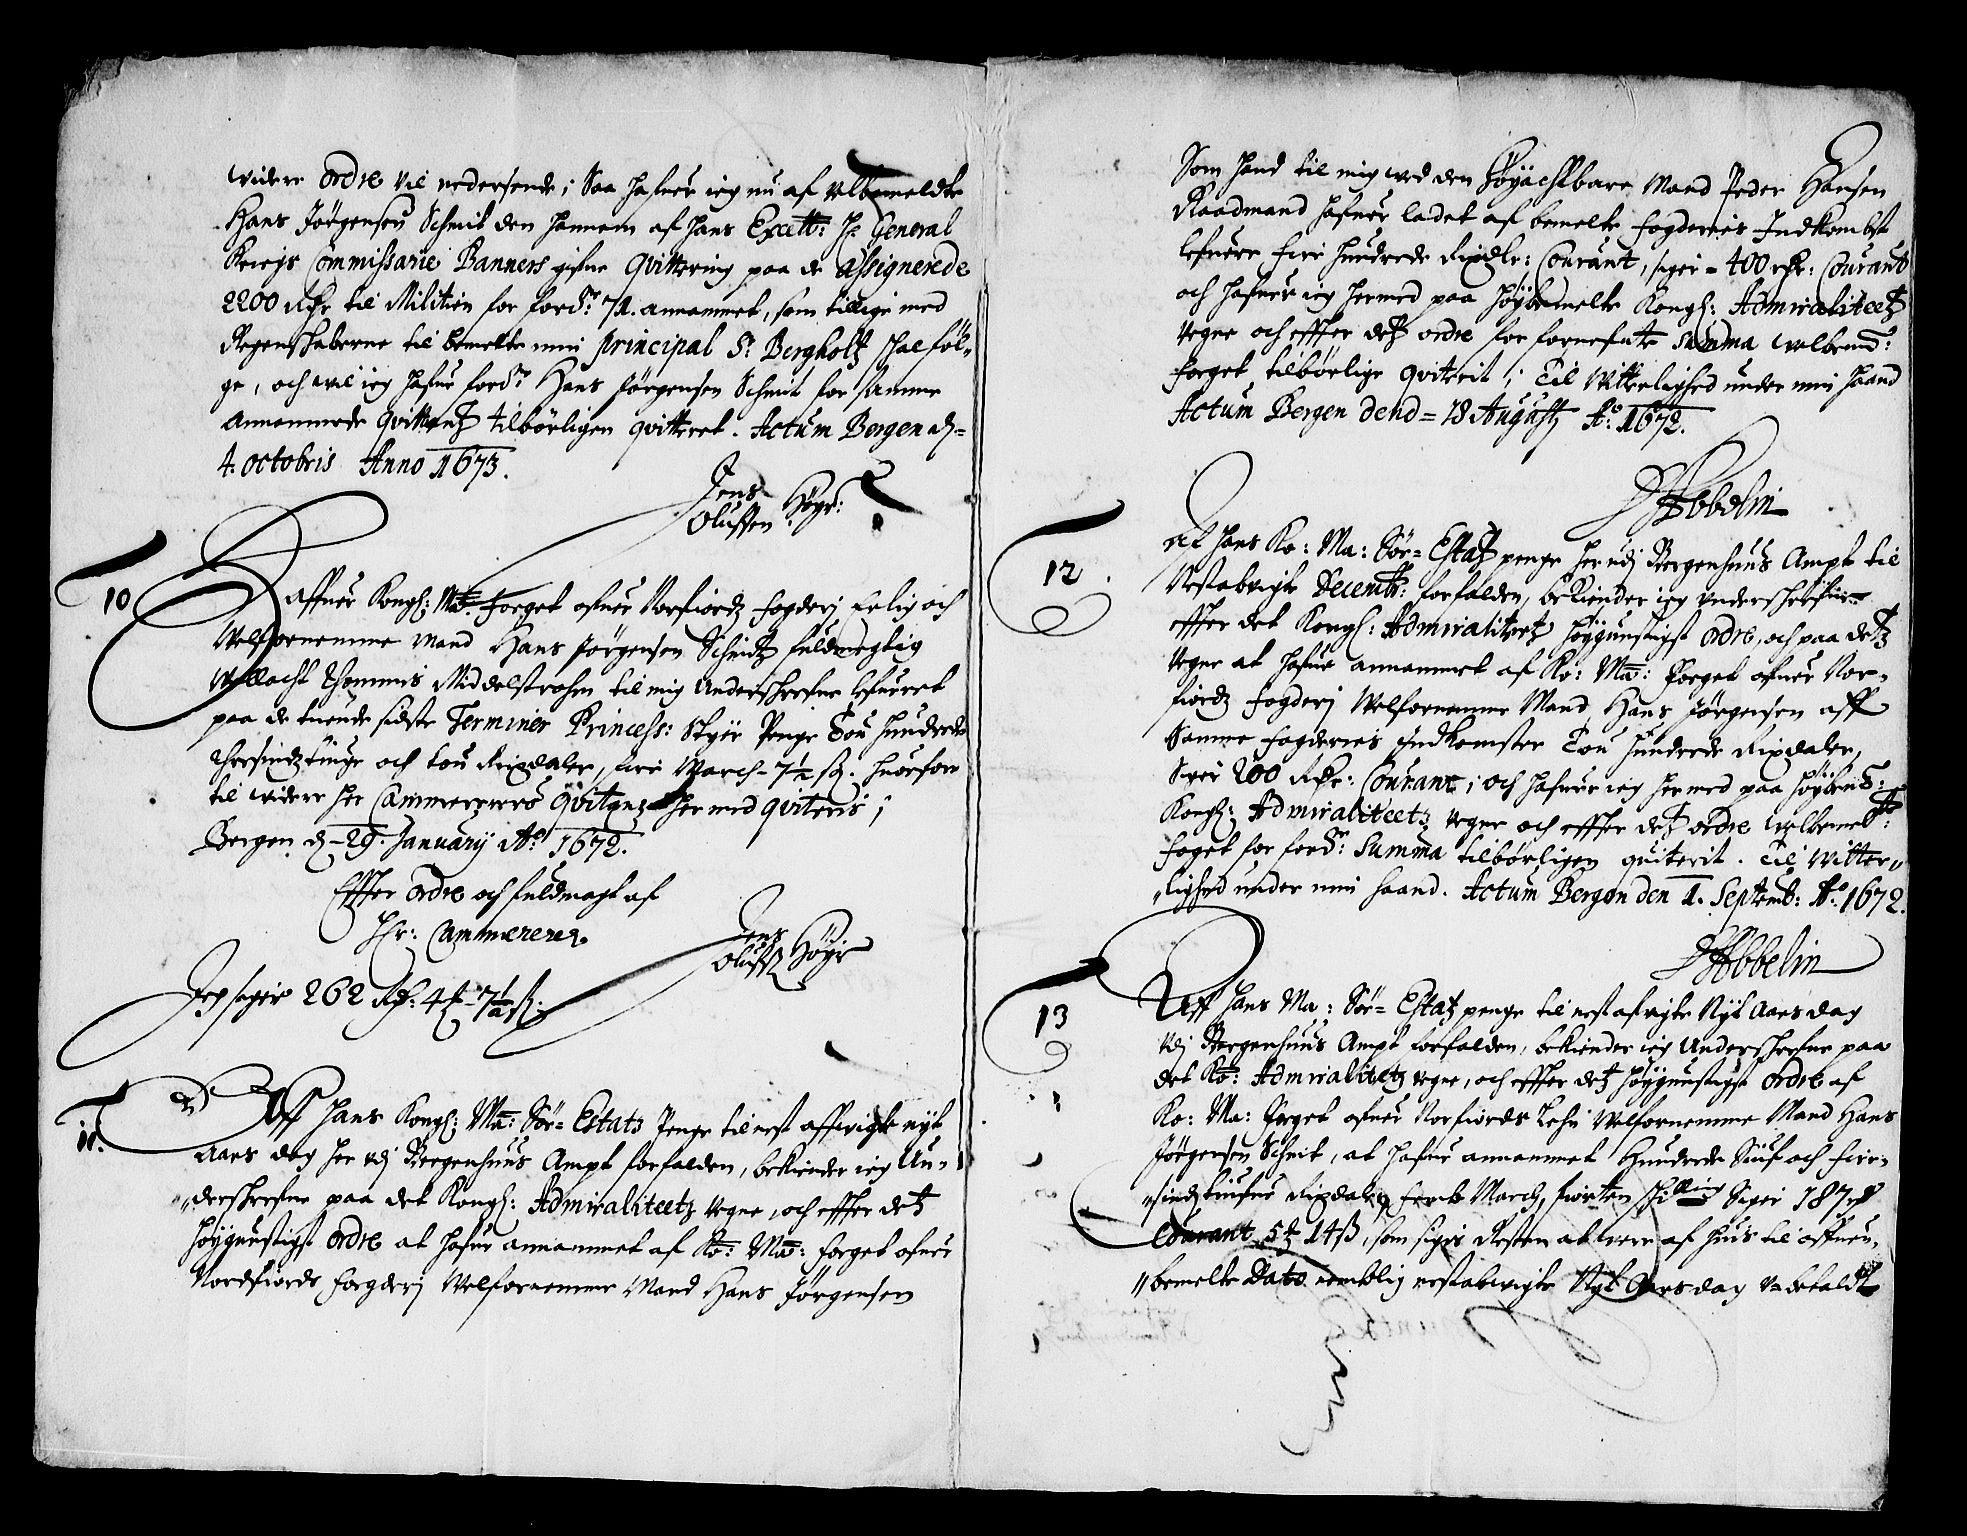 widere ordre vil nedersende; Saa hafuer ieg nu af velbemeldte
Hans Jørgensøn Schmit den hannem af Hans Excell: Hr General
Kriegs Commissarie Banners gifne Qvittering paa de assignerede
2200 Rdr til Militien for ford: 71. annammet, som tillige med
Regenskaberne til bemelte min principal Sr Bergholtz skal føl-
ge, och vil ieg hafue ford: Hans Jørgensen Schmit for samme
annammede qvittentz tilbørligen qvitteret. Actum Bergen dn=
4. octobris Anno 1673.
Jens
Olufsen Høyr:
10
Haffuer Kongl: Ma: Foeget ofuer Norfiordz Fogderj Erlig och
Velfornemme mand Hans Jørgensen Schmitz fuldmegtig
Wellacht Thommis Middelstrohm til mig Underskrefne lefueret
paa de tuende sidste Terminer Princess: Styer Penge Tou hundrede
Thresindztiuge och tou Rixdaler, fire March 7½ sz. huorfor
til widere her Cammererers Qvitantz her med qviteris;
Bergen dn 29. January Ao: 1672.
Effter ordre och fuldmagt af
Hr: Cammererer.
Jeg siger 262 Rdr: 4 ℔ 7½ ß.
Jens
Olufsz Høyr
11.
Aff Hans Kongl: Ma: Sør= Estats Penge til nest affvigte nyt
Aars dag her vdj Bergenhuus Ampt forfalden, bekiender ieg Un-
"derskrefne paa det Kongl: Admiraliteetz vegne, och effter detz
høygunstigst ordre at hafue annammet af Ko: Ma: Foeget ofuer
Nordfiords Foegderj Velfornemme Mand Hans Jørgensen
Som hand til mig ved den Høyachtbare Mand Peder Hansen
Raadmand hafuer ladet af bemelte Fogderies Indkombst
lefuere fire hundrede Rixdlr: Courant, siger = 400 rdr: Courant
och hafuer ieg hermed paa høybemelte Kongl: Admiraliteetz
vegne och effter detz ordre for fornefnte Summa velbemd:
Foeget tilbørlige qviterit; Til Witterlighed under min haand
Actum Bergen dend = 18 Augusti Ao: 1672.
Abbelin
12.
Af Hans Ko: Ma: Sør= Estatz penge her udj Bergenhuus Ampt til
Nestabvigte Decemb: forfalden, bekiender ieg underskrefne
effter det Kongl: Admiralitetz høygunstigst ordre, och paa detz
vegne at hafue annammet af Ko: Ma: Foeget ofuer Nor-
fiordz Fogderj Velfornemme Mand Hans Jørgensen aff
Samme Fogderies Indkomster Tou hundrede Rixdaler,
Siger 200 Rdr: Courant; och hafuer ieg hermed paa høybemd:
Kongl: Admiraliteetz vegne och effter detz ordre velbemelte
Foget for ford: Summa tilbørligen quiterit. Til witter,,
"lighed under min haand. Actum Bergen den 1. Septemb: Ao: 1672.
Abbelin
13
Aff Hans Ma: Sør= Estatz penge til nestafvigte Nyt Aars dag
vdj Bergenhuus Ampt forfalden, bekiender ieg Underskrefne paa
det Ko: Admiralitetz vegne, och effter detz høygunstigst ordre af
Ko: Ma: Foeget ofuer Norfiords Lehn Velfornemme Mand Hans
Jørgensen Schmit, at hafue annammet Hundrede Siuf och fire-
"sindztiufue Rixdaler, Femb March, fiorten skilling Siger 187 rdr
Courant 5 ℔ 14 ß, som siges Resten at vere af huis til offuen,
"bemelte Dato nemblig nestabvigte Nyt Aarsdag v-betaldt